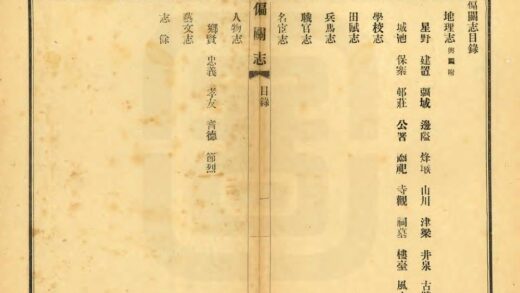 偏關志目錄
地理志 輿圖附
星野 建置 疆域 邊隘 烽堠 山川 津梁 井泉
城池 保寨 邨莊 公署 祠祀 寺觀 祠墓 樓臺 風
學校志
田賦志
兵馬志
職官志
名宦志
偏關志 目錄
人物志
鄉賢 忠義 孝友 耆德 節烈
藝文志
志餘